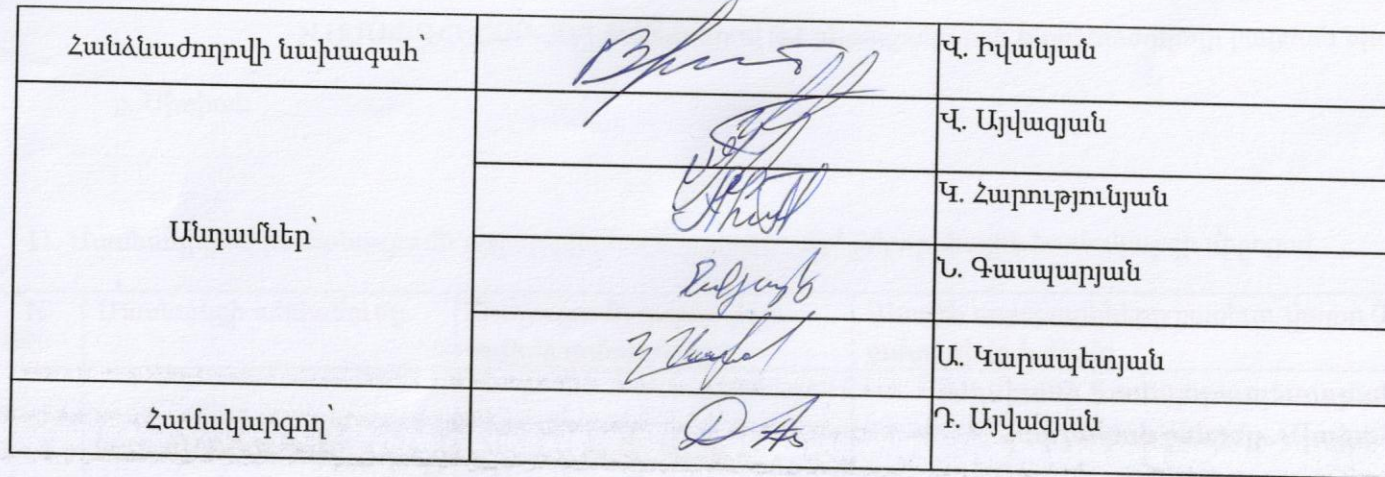 Հանձնաժողովի նախագահ՝ Վ. Իվանյան
Վ. Այվազյան
Կ. Հարությունյան
Անդամներ՝
Ն. Գասպարյան
Ա. Կարապետյան
Համակարգող՝ Դ. Այվազյան